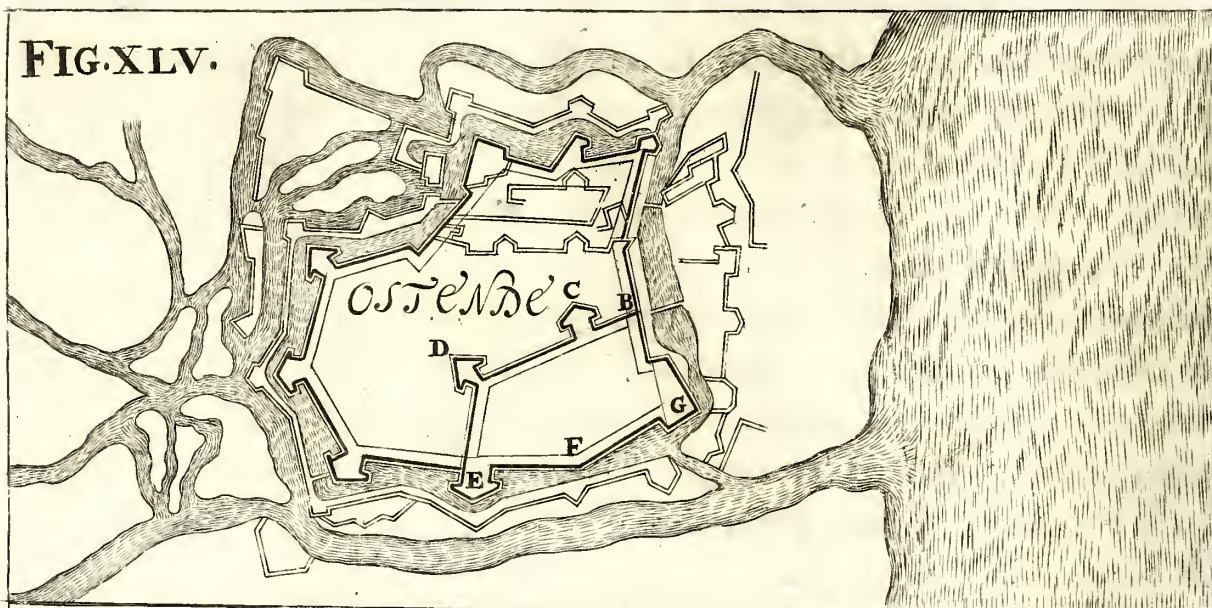 FIG.XLV.
OSTENDE
C
B
D
G
F
E